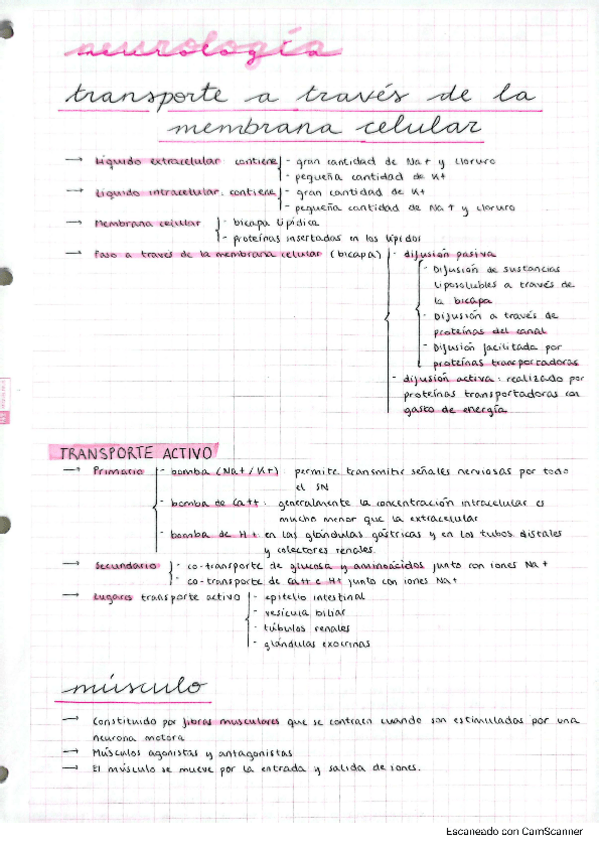 neurología
transporte a través de la
membrana celular
→ Líquido extracelular contiene - gran cantidad de Na+ y cloruro
- pequeña cantidad de K+
→ Líquido intracelular: contiene - gran cantidad de K+
- pequeña cantidad de Na+ y cloruro
→ Membrana celular - bicapa lipídica
- proteínas insertadas en los lípidos
→ Paso a través de la membrana celular (bicapa) - difusión pasiva
- Difusión de sustancias
liposolubles a través de
la bicapa
- Difusión a través de
proteínas del canal
- Difusión facilitada por
proteínas transportadoras
- difusión activa: realizado por
proteínas transportadoras con
gasto de energía
TRANSPORTE ACTIVO
→ Primario - bomba (Na+/K+): permite transmitir señales nerviosas por todo
el SN
- bomba de Ca++: generalmente la concentración intracelular es
mucho menor que la extracelular
- bomba de H+: en las glándulas gástricas y en los tubos distales
y colectores renales.
→ Secundario - co-transporte de glucosa y aminoácidos junto con iones Na+
- co-transporte de Ca++ e H+ junto con iones Na+
→ Lugares transporte activo - epitelio intestinal
- vesícula biliar
- túbulos renales
- glándulas exocrinas
músculo
→ Constituido por fibras musculares que se contraen cuando son estimuladas por una
neurona motora
→ Músculos agonistas y antagonistas
→ El músculo se mueve por la entrada y salida de iones.
Escaneado con CamScanner